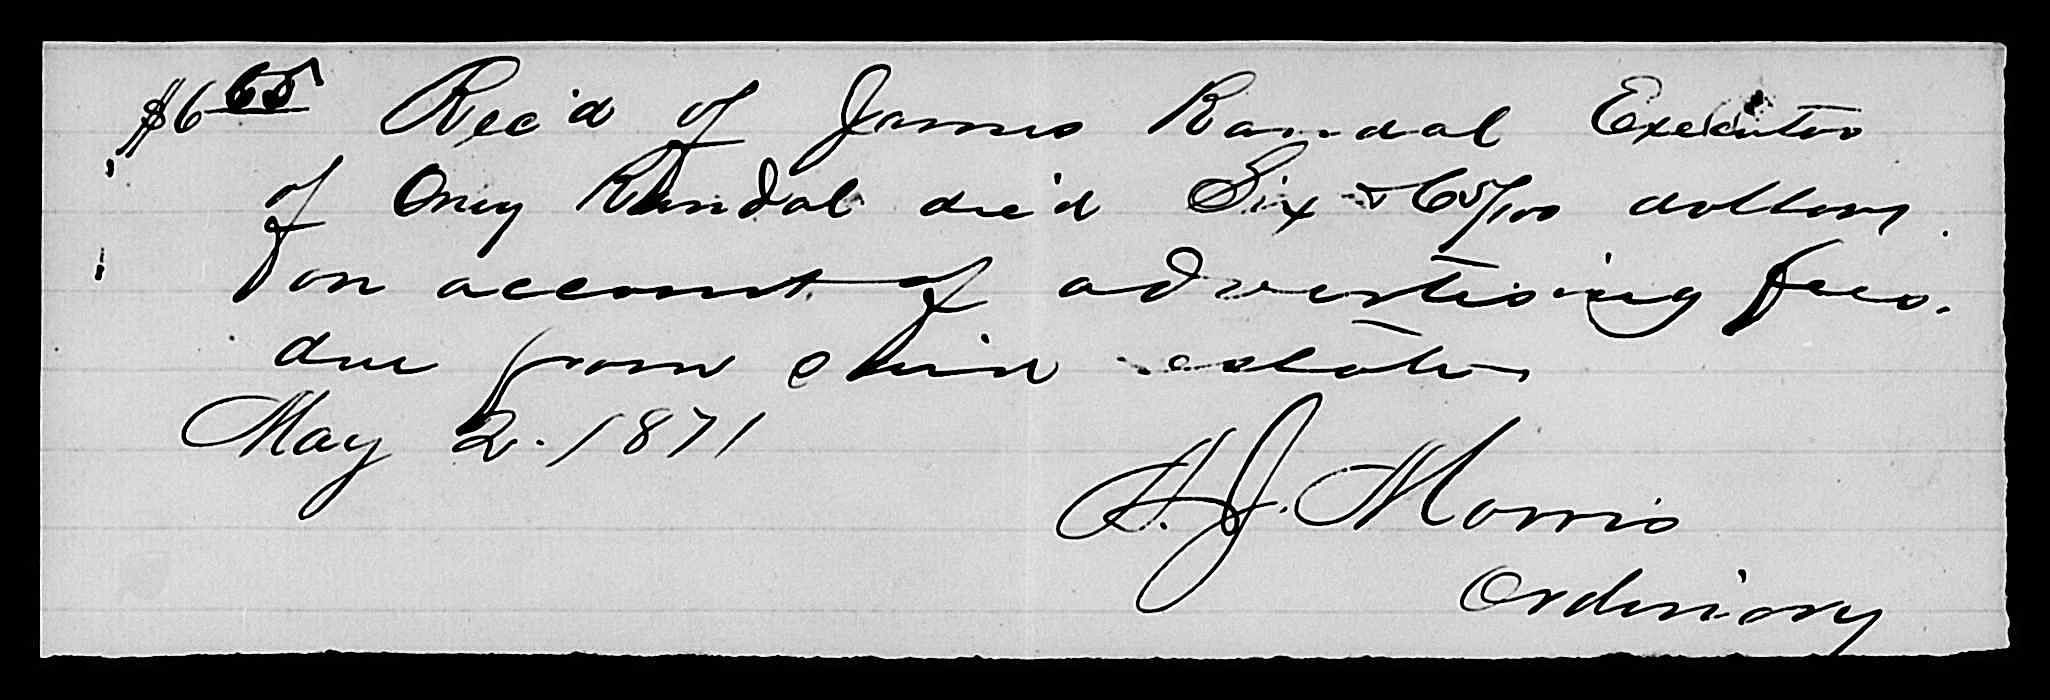 $6 65 Rec'd of James Randal Executor
of Randal dec'd Six & 65/100 dollars
on account of advertising fees.
due from said estate
May 2. 1871
J. Morris
Ordinary